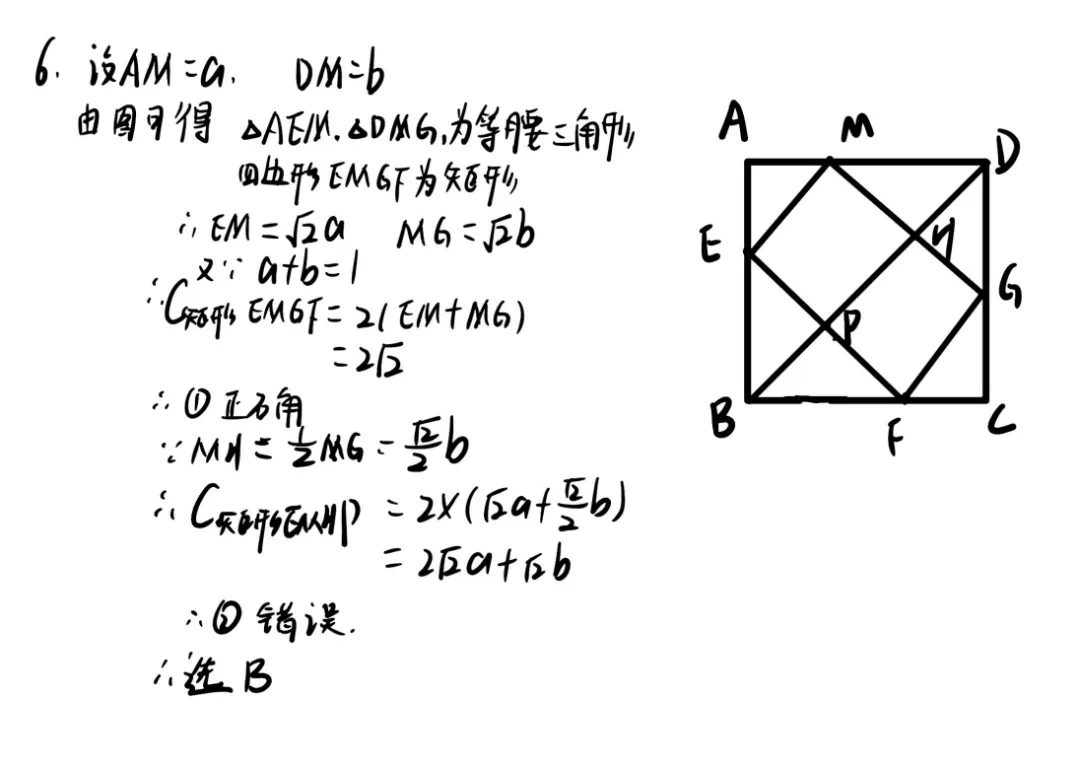 6. 设AM=a. DM=b
由图可得 △AEM.△DMG,为等腰三角形
四边形EMGF为矩形
∴EM=√2a MG=√2b
又∵ a+b=1
∴C矩形EMGF=2(EM+MG)
=2√2
∴①正确
∵MH=1/2MG=√2/2b
∴C矩形EMHP=2×(√2a+√2/2b)
=2√2a+√2b
∴②错误.
∴选B
A M D
E H G
P
B F C